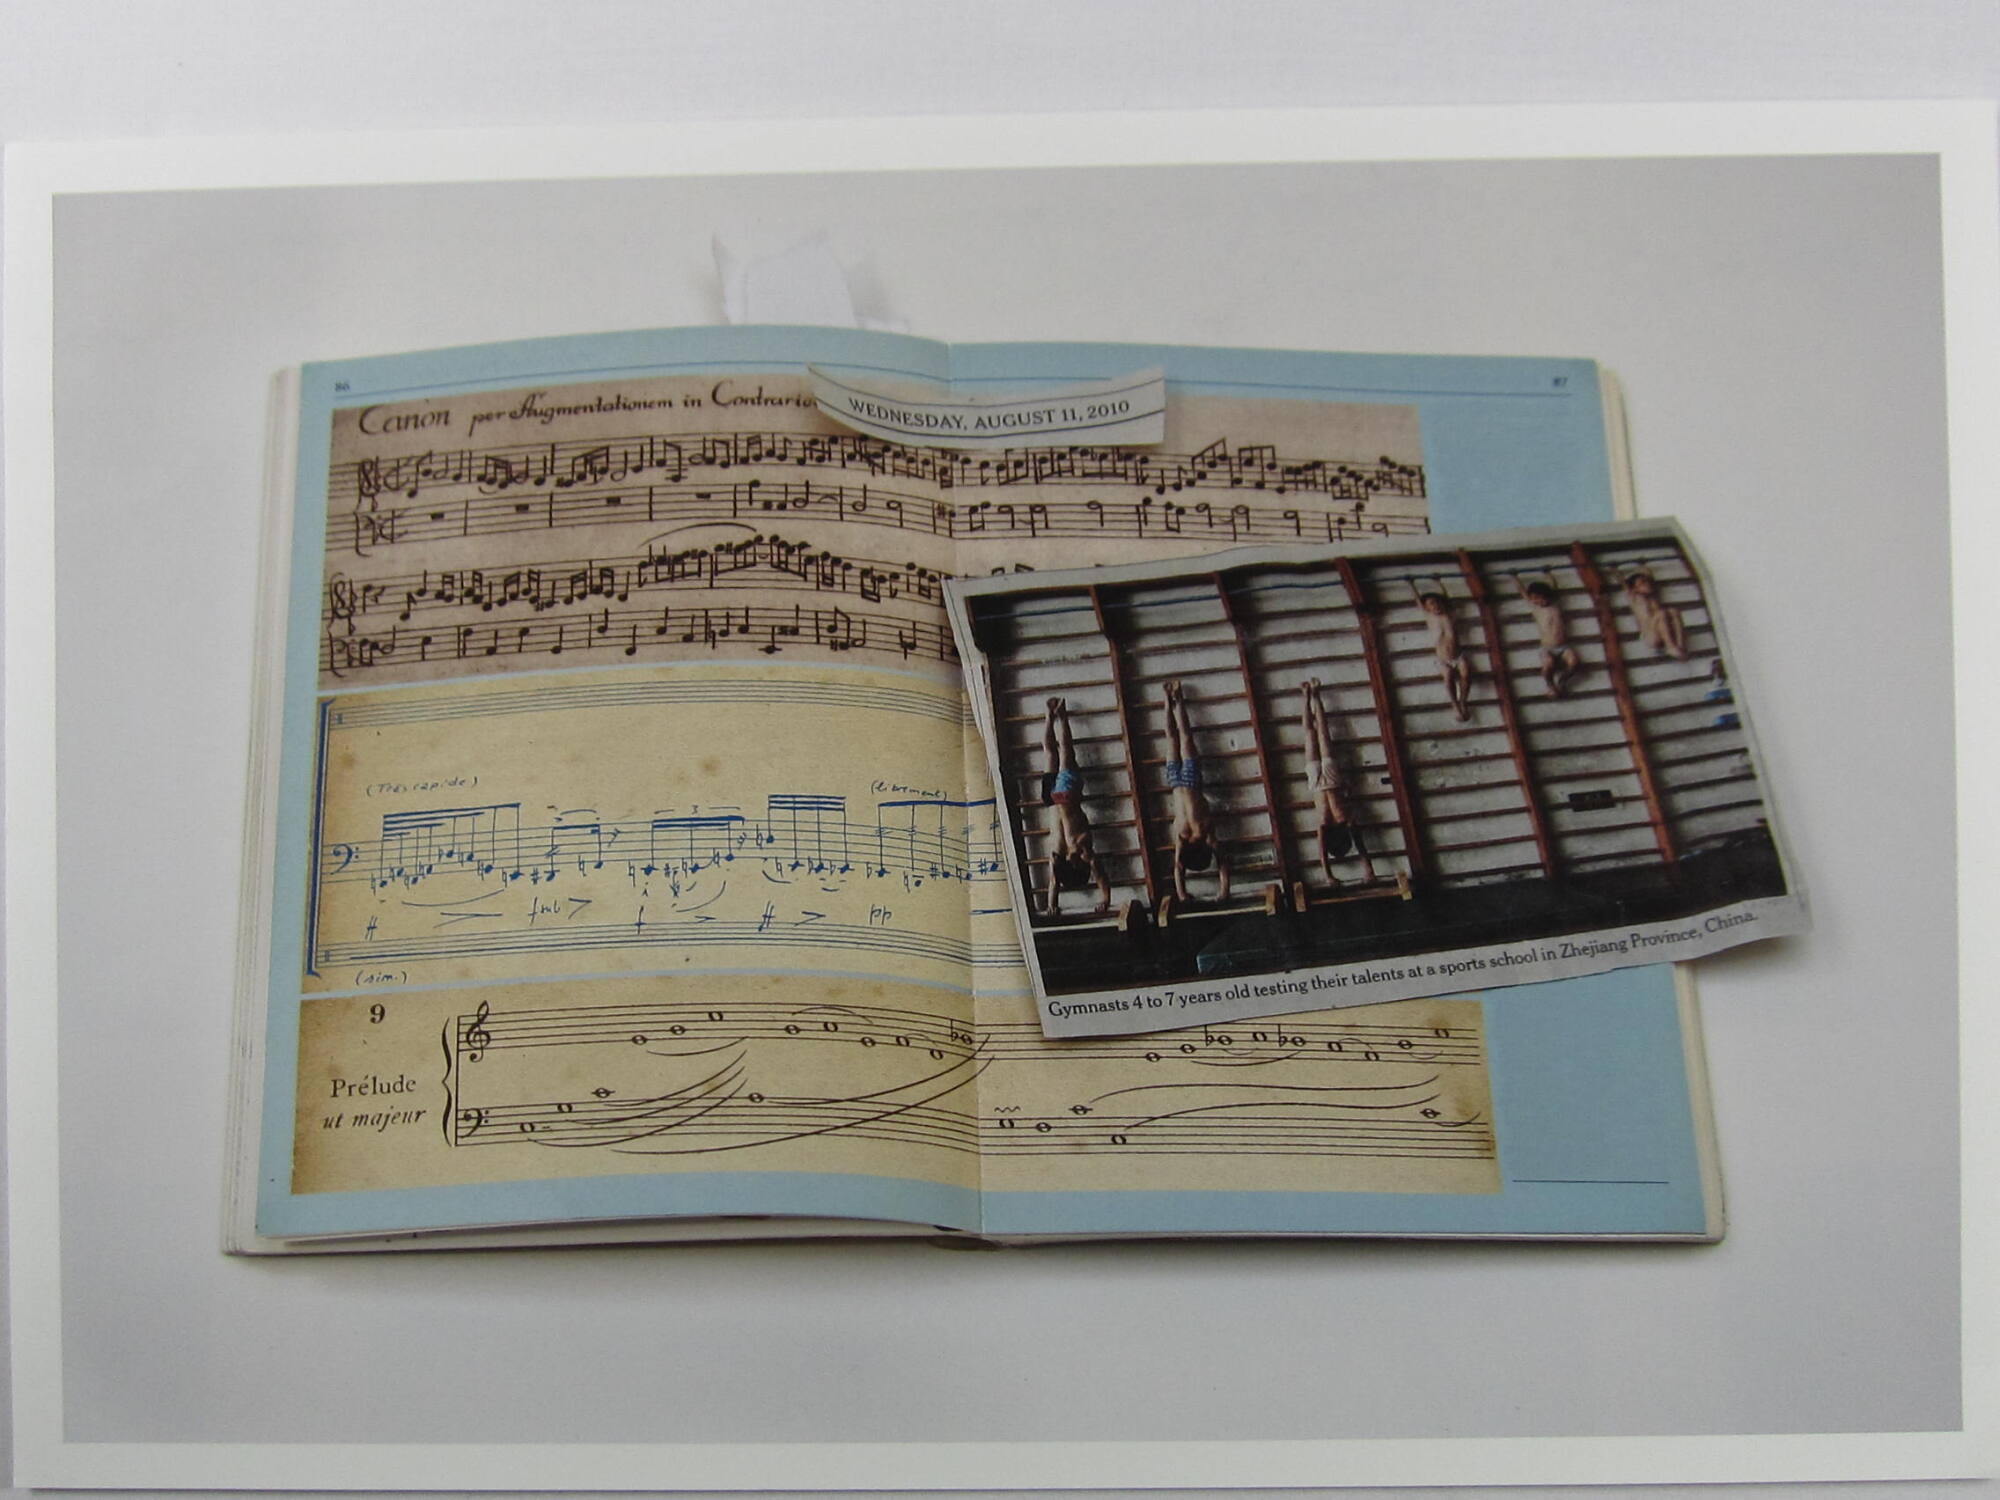 86
87
Canon per Augmentationem in Contrario
WEDNESDAY, AUGUST 11, 2010
(Très rapide)
(librement)
ff
f sub
f
ff
pp
(sim.)
Gymnasts 4 to 7 years old testing their talents at a sports school in Zhejiang Province, China.
9
Prélude
ut majeur